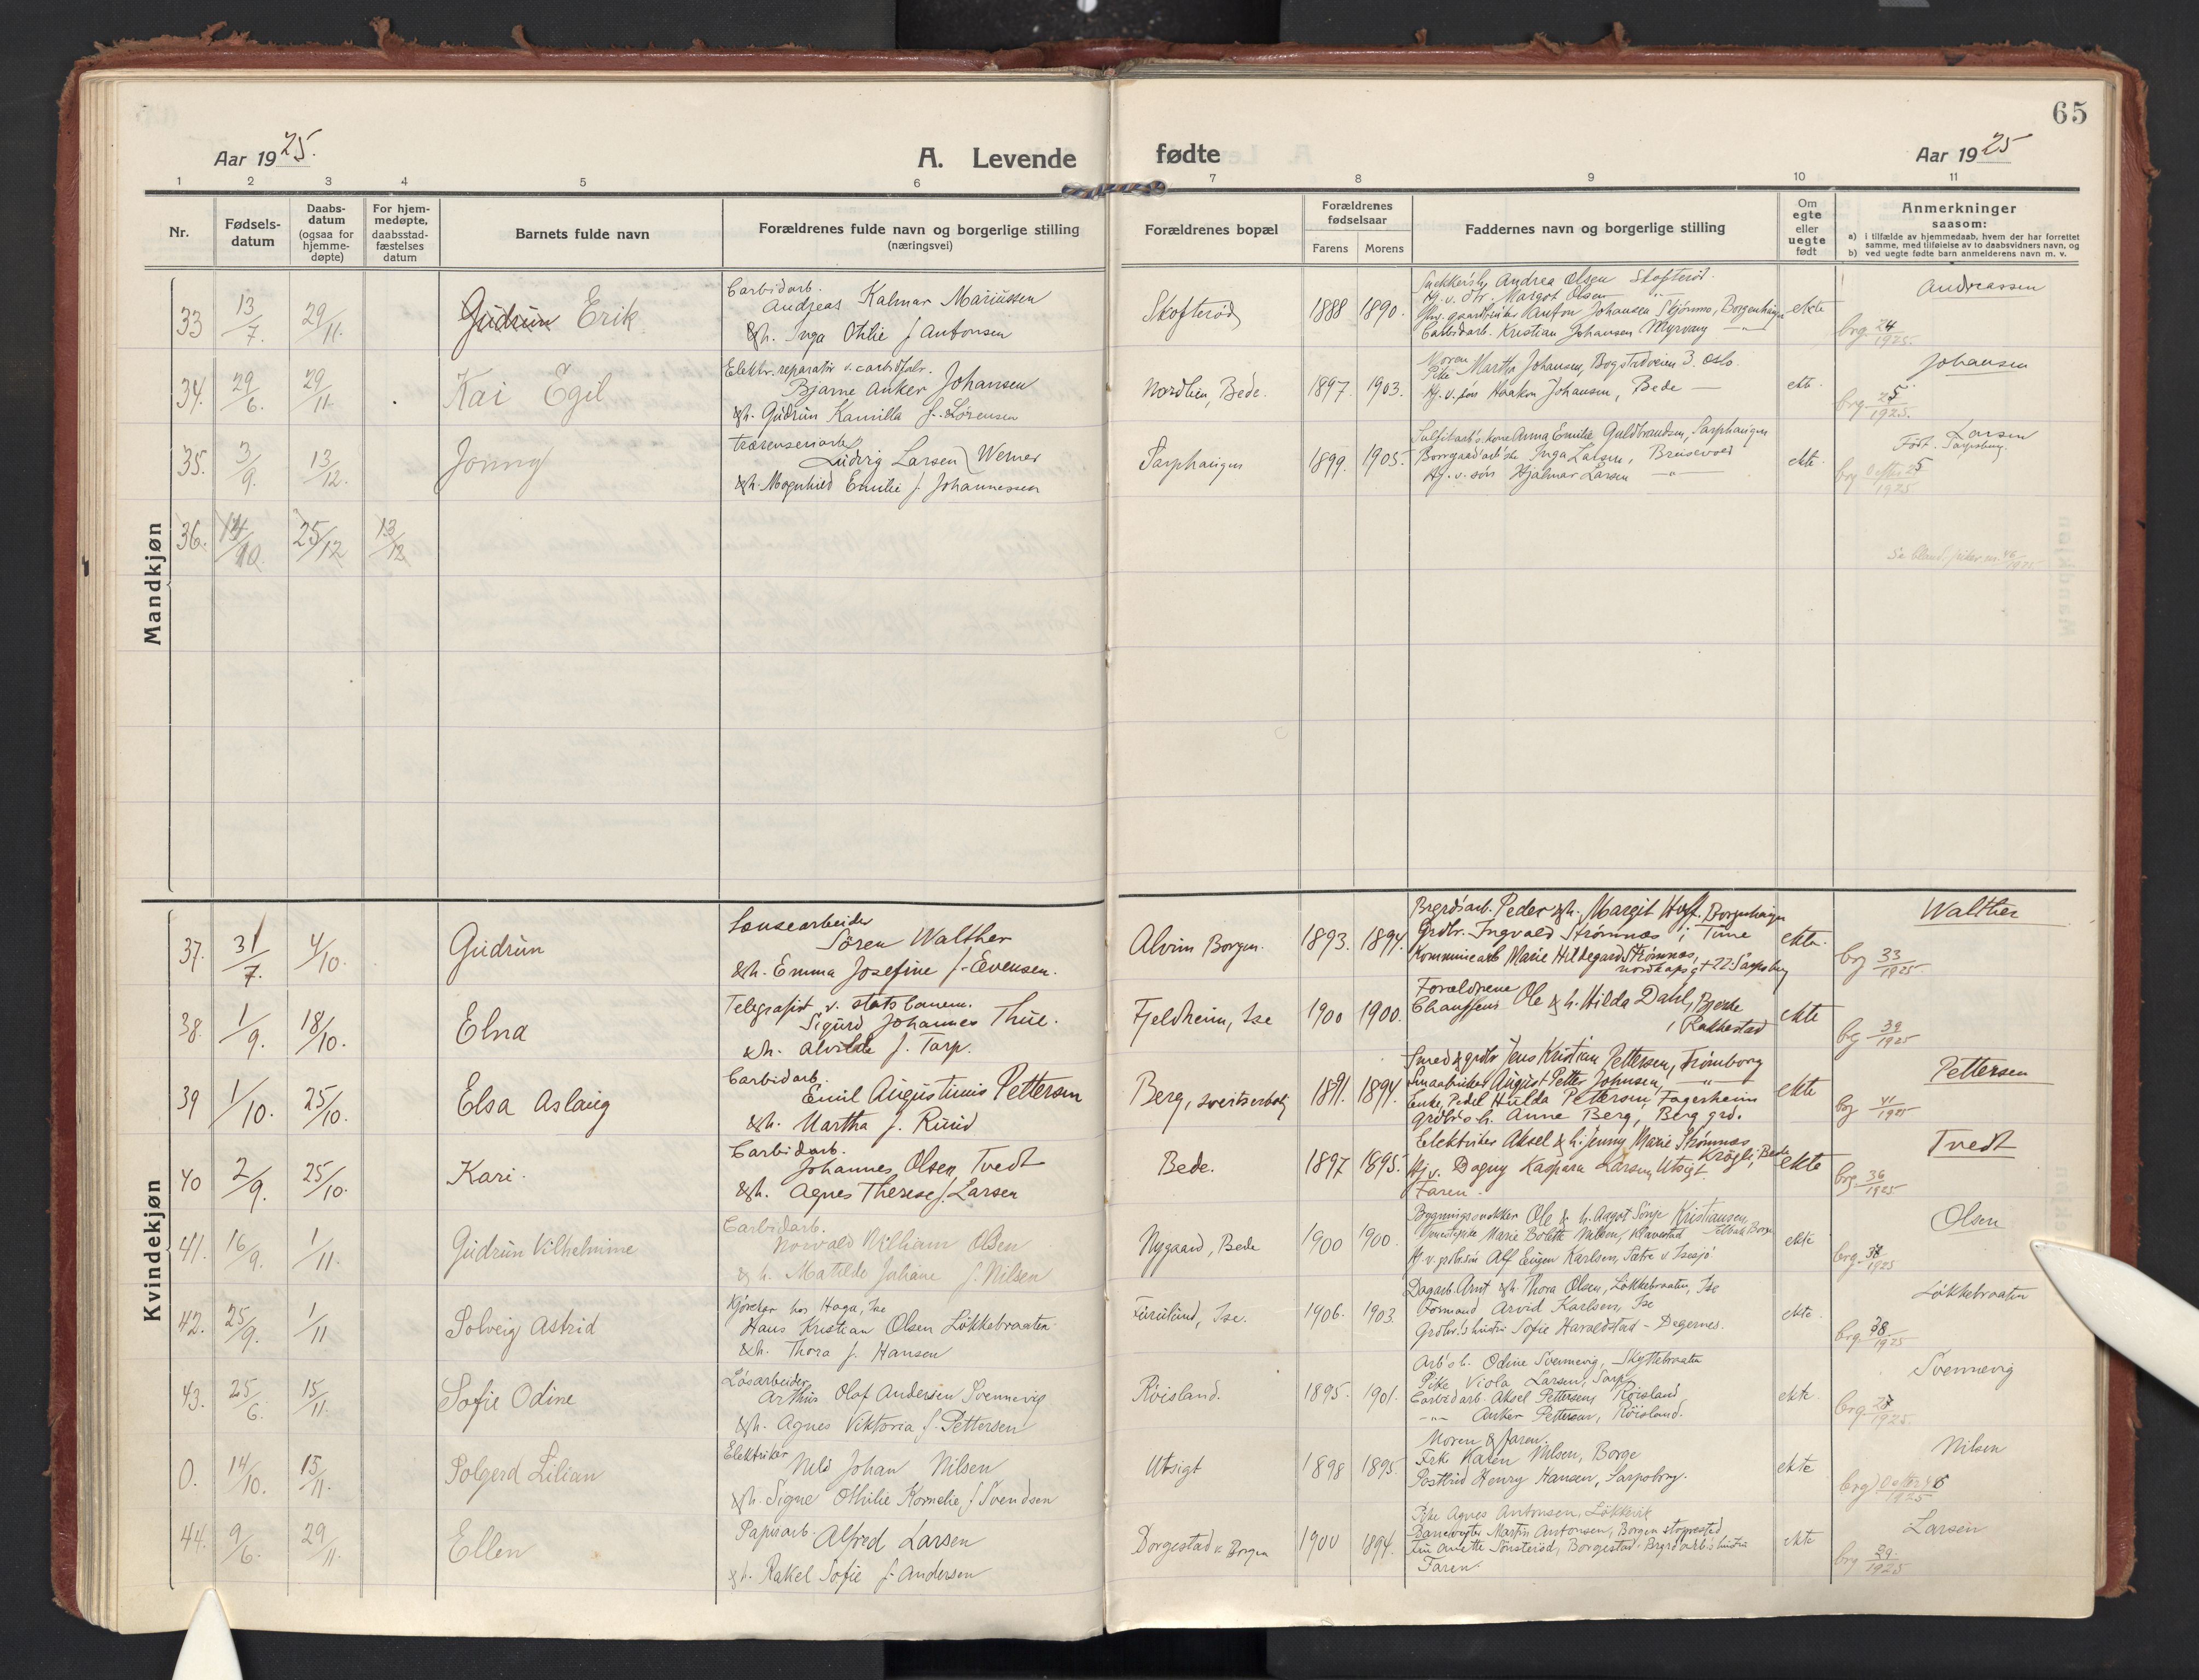 65
Aar 1925.
A. Levende fødte
Aar 1925
1 2 3 4 5 6 7 8 9 10 11
Nr.
Fødsels-
datum
Daabs-
datum
(ogsaa for
hjemme-
døpte)
For hjem-
medøpte,
daabsstad-
fæstelses
datum
Barnets fulde navn
Forældrenes fulde navn og borgerlige stilling
(næringsvei)
Forældrenes bopæl
Forældrenes
fødselsaar
Farens Morens
Faddernes navn og borgerlige stilling
Om
egte
eller
uegte
født
Anmerkninger
saasom:
a) i tilfælde av hjemmedaab, hvem der har forrettet
samme, med tilføielse av to daabsvidners navn, og
b) ved uegte fødte barn anmelderens navn m. v.
Mandkjøn
33 13/7. 29/11. Gudrun Erik
Carbidarb.
Andreas Kalmar Mariussen
&h. Inga Othilie f Antonsen
Skofterød 1888 1890.
Andrea Olsen Skofterød.
Hj. v. dtr. Margot Olsen
Anton Johansen Skjønnes, Borgenhaugen
Carbidarb. Kristian Johansen Myrvang
ekte
Andreassen
brg 24/1925.
34. 29/6. 29/11. Kai Egil
Elektr. reparatør v. carbidfabr.
Bjarne Anker Johansen
&h. Gudrun Kamilla f. Sørensen
Nordlien, Bede. 1897. 1903.
Moren
Pike Martha Johansen, Bogstadveien 3. Oslo.
Hj. v. søn Haakon Johansen, Bede
ekte.
Johansen
brg. 25/1925.
35. 3/9. 13/12. Jonny
Træsenseriarb
Ludvig Larsen Werner
&h. Magnhild Emilie f. Johannessen
Sarphaugen 1899. 1905.
Sulfitarb's kone Anna Emilie Guldbrandsen, Sarphaugen
Inga Larsen,
Hj. v. søn Hjalmar Larsen
ekte.
Larsen
Født. Sarpsborg.
1925
36. 14/10. 25/12 13/12
Se bland. piker nr. 46/1925
Kvindekjøn
37. 31/7. 4/10. Gudrun
Lensearbeider
Søren Walther
&h. Emma Josefine f. Evensen.
Alvim Borgen. 1893. 1894.
Peder &h. Margit Hoff. Borgenhaugen
Grdbr. Ingvald Strømnes i Tune
Kommunearb Marie Hildegard Strømnes,
Nordkapsgt 22. Sarpsborg
ekte.
Walther
brg 33/1925
38. 1/9. 18/10. Elna
Telegrafist v. statsbanen.
Sigurd Johannes Thue.
&h. Alvilde f. Tarp.
Fjeldheim, Ise 1900 1900.
Forældrene
Chauffeur Ole & h. Hilda Dahl, Bjerke
i Rakkestad
ekte
brg 39/1925
39 1/10. 25/10. Elsa Aslaug
Carbidarb.
Emil Augustinus Pettersen
&h. Martha f. Ruud
Berg, 1891. 1894.
Smed & grdbr Jens Kristian Pettersen, Trømborg
Smaabruker August Petter Johnsen,
Enke, Pedel Hulda Pettersen, Fagerheim
Grdbr's h. Anne Berg, Berg grd.
ekte
Pettersen
brg 41/1925
40 2/9. 25/10. Kari.
Carbidarb.
Johannes Olsen Tvedt
&h. Agnes Therese f. Larsen
Bede. 1897 1895.
Elektriker Aksel & h. Jenny Marie Strømnes
Krøgli, Bede
Hj. v. Dagny Kaspara Larsen, Utsigt.
Faren.
ekte
Tvedt
brg. 36/1925
41. 16/9. 1/11. Gudrun Vilhelmine
Carbidarb.
Norvald William Olsen
& h. Matilde Juliane f. Nilsen
Nygaard, Bede 1900 1900.
Bygningssnekker Ole & h. Aagot Sönje Kristiansen,
Marie Bolette Nilsen, Klavestad
Alf Eugen Karlsen, Sætre v Isesjø
ekte
Olsen
brg. 38/1925
42. 25/9. 1/11 Solveig Astrid
Kjørekar hos Haga, Ise
Hans Kristian Olsen Løkkebraaten
&h. Thora f. Hansen
Furulund, Ise. 1906. 1903
Dagarb. Arnt &h. Thora Olsen, Løkkebraaten, Ise
Formand Arvid Karlsen, Ise
Grdbr.'s hustru Sofie Haraldstad - Degernes.
ekte
Løkkebraaten
brg. 38/1925
43. 25/6. 15/11. Sofie Odine
Løsarbeider
Arthur Olaf Andersen Svennevig
&h. Agnes Viktoria f. Pettersen
Røisland. 1895. 1901.
Arb's h. Odine Svennevig, Skyttebraaten
Pike Viola Larsen, Sarp
Carbidarb Aksel Pettersen, Røisland
Anker Pettersen, Røisland.
ekte.
Svennevig
1925.
0. 14/10. 15/11. Solgerd Lilian
Elektriker
Nils Johan Nilsen
&h. Signe Othilie Kornelie f Svendsen
Utsigt 1898 1895
Moren & faren.
Frk Karen Nilsen, Borge
Postbud Henry Hansen, Sarpsborg.
ekte
Nilsen
1925
44. 9/6. 29/11. Ellen
Papirarb. Alfred Larsen
&h. Rakel Sofie f. Andersen
Borgestad v. Borgen 1900 1894.
Pike Agnes Antonsen, Løkkevik
Banevogter Martin Antonsen, Borgen stoppested
Anette Sønsterød, Borgestad
Faren.
ekte
Larsen
brg 29/1925